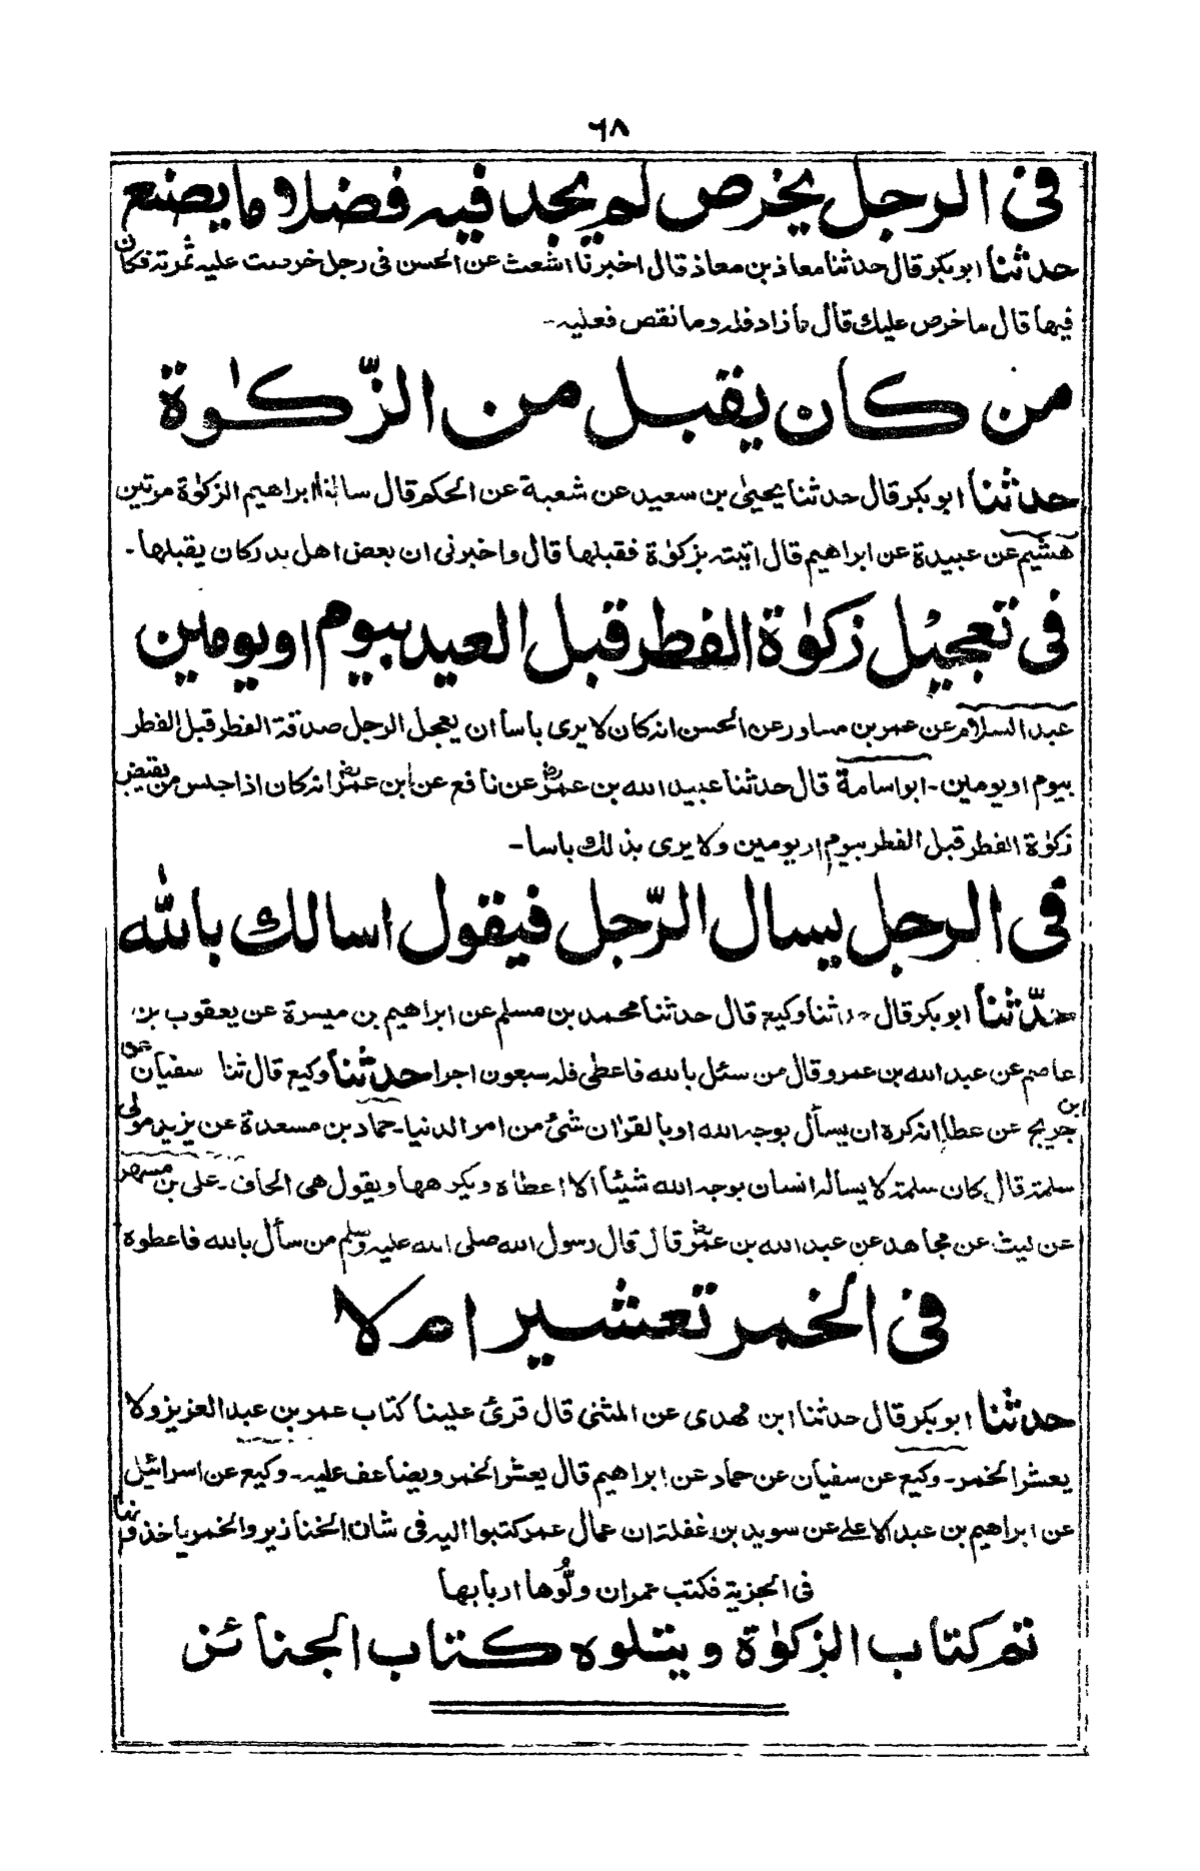 ٦٨
فى الرجل يخرص لم يجد فيه فضلا وما يصنع
حدثنا ابو بكر قال حدثنا معاذ بن معاذ قال اخبرنا اشعث عن الحسن فى رجل خرصت عليه ثمرته فكان
فيها قال ما خرص عليك قال ما زاد فله وما نقص فعليه-
من كان يقبل من الزّكوٰة
حدثنا ابو بكر قال حدثنا يحيىٰ بن سعيد عن شعبة عن الحكم قال سالنا ابراهيم الزكوٰة مرتين
هشيم عن عبيدة عن ابراهيم قال اتيته بزكوٰة فقبلها قال واخبرنى ان بعض اهل بدر كان يقبلها-
فى تعجيل زكوٰة الفطر قبل العيد بيوم او يومين
عبد السلام عن عمر بن مساور عن الحسن انه كان لا يرى باسا ان يعجل الرجل صدقة الفطر قبل الفطر
بيوم او يومين- ابو اسامة قال حدثنا عبيد الله بن عمرؓ عن نافع عن ابن عمرؓ انه كان اذا جلس من يقبض
زكوٰة الفطر قبل الفطر بيوم او يومين ولا يرى بذلك باسا-
فى الرجل يسال الرّجل فيقول اسالك بالله
حدّثنا ابو بكر قال حدثنا وكيع قال حدثنا محمد بن مسلم عن ابراهيم بن ميسرة عن يعقوب بن
عاصم عن عبد الله بن عمرو قال من سئل بالله فاعطى فله سبعون اجرا حدثنا وكيع قال ثنا سفيان عن
ابن جريج عن عطا انه كره ان يسأل بوجه الله او بالقرٰان شئ من امر الدنيا- حماد بن مسعدة عن يزيد مولى
سلمة قال كان سلمة لا يساله انسان بوجه الله شيئا الا اعطاه ويكرهها ويقول هى الحاف- على بن مسهر
عن ليث عن مجاهد عن عبد الله بن عمرؓ قال قال رسول الله صلى الله عليه وسلم من سأل بالله فاعطوه
فى الخمر تعشير ام لا
حدثنا ابو بكر قال حدثنا ابن مهدى عن المثنى قال قرئ علينا كتاب عمر بن عبد العزيز ولا
يعشر الخمر- وكيع عن سفيان عن حماد عن ابراهيم قال يعشر الخمر ويضاعف عليه- وكيع عن اسرائيل
عن ابراهيم بن عبد الاعلى عن سويد بن غفلة ان عمال عمر كتبوا اليه فى شان الخنازير والخمر ياخذونها
فى الجزية فكتب عمر ان ولّوها اربابها
تم كتاب الزكوٰة ويتلوه كتاب الجنائز